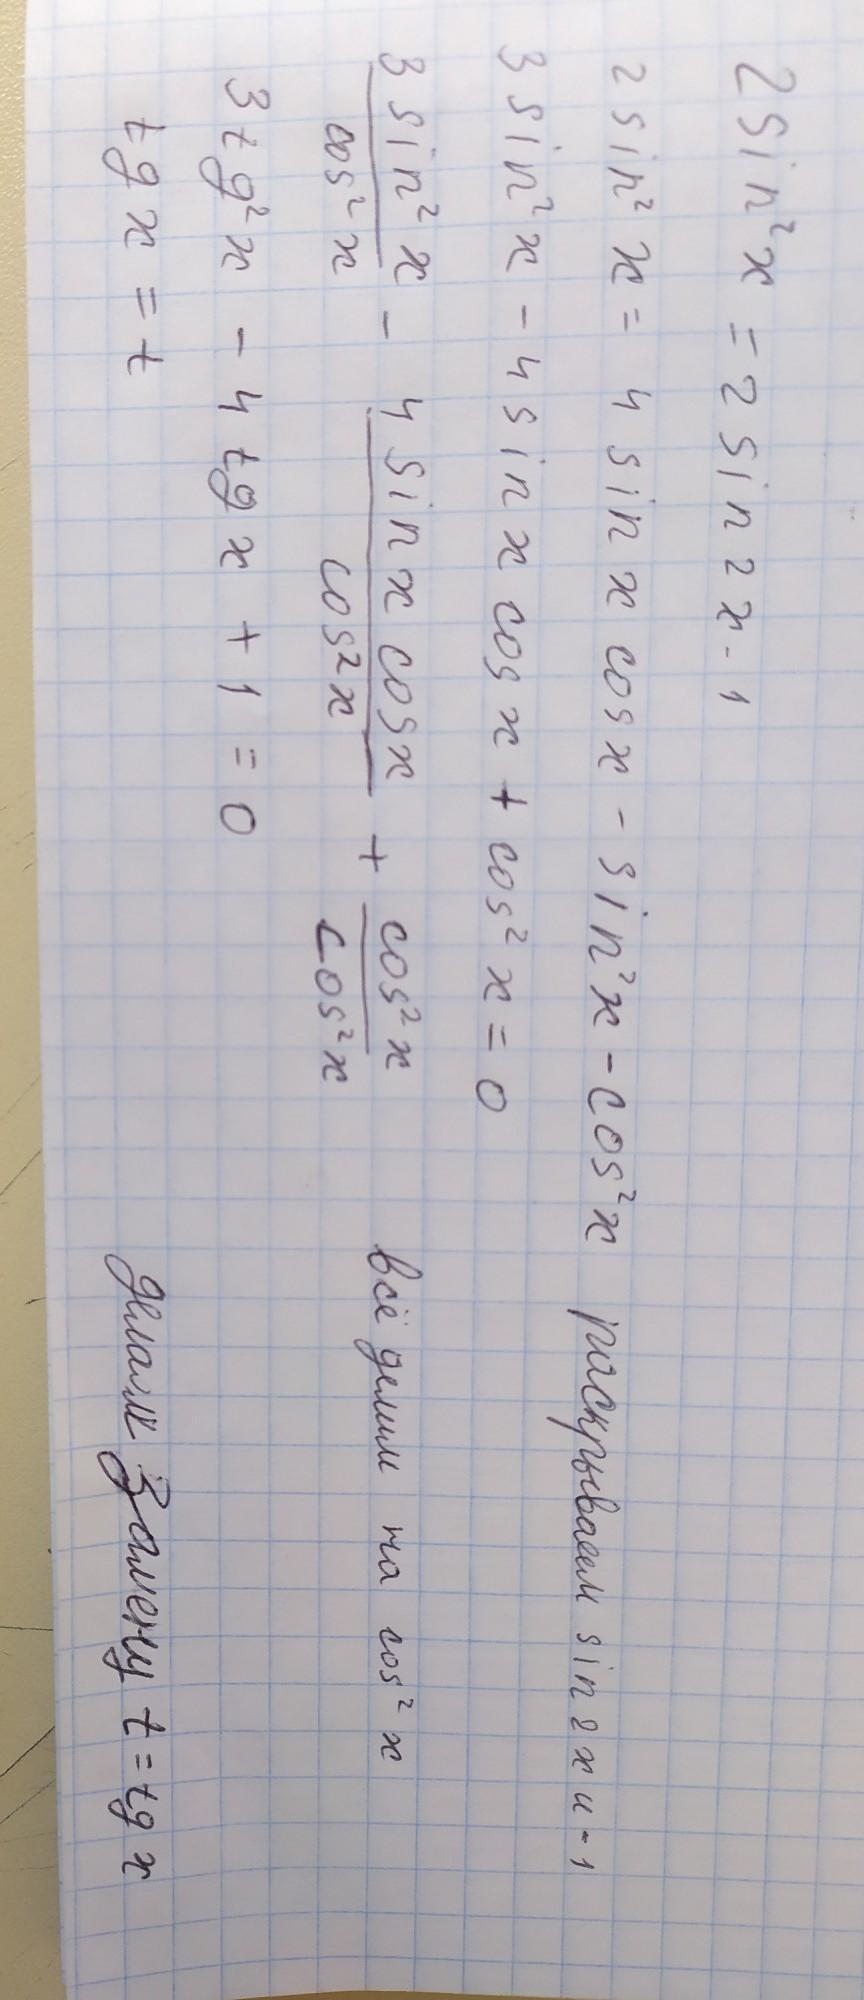 2 sin² x = 2 sin 2x - 1
2 sin² x = 4 sin x cos x - sin² x - cos² x раскрываем sin 2x и -1
3 sin² x - 4 sin x cos x + cos² x = 0
3 sin² x / cos² x - 4 sin x cos x / cos² x + cos² x / cos² x всё делим на cos² x
3 tg² x - 4 tg x + 1 = 0
tg x = t делаем замену t = tg x